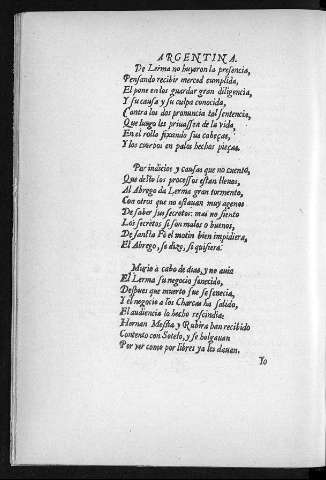 ARGENTINA.
De Lerma no huyaron la presencia,
Pensando recibir merced cumplida,
El pone en los guardar gran diligencia,
Y su causa y su culpa conocida,
Contra los dos pronuncia tal sentencia,
Que luego les priuassen de la vida,
En el rollo fixando sus cabeças,
Y los cuerpos en palos hechos pieças.
Por indicios y causas que no cuento,
Que dello los processos estan llenos,
Al Abrego da Lerma gran tormento,
Con otros que no estauan muy agenos
De saber sus secretos: mas no siento
Los secretos si son malos o buenos,
De sancta Fè el motin bien impidiera,
El Abrego, se dize, si quisiera.
Murio a cabo de dias, y no auia
El Lerma su negocio fenecido,
Despues que muerto fue se fenecia,
Y el negocio a los Charcas ha salido,
El audiencia lo hecho rescindia:
Hernan Mexia y Rubira han recibido
Contento con Sotelo, y se holgauan
Por ver como por libres ya los dauan.
Yo